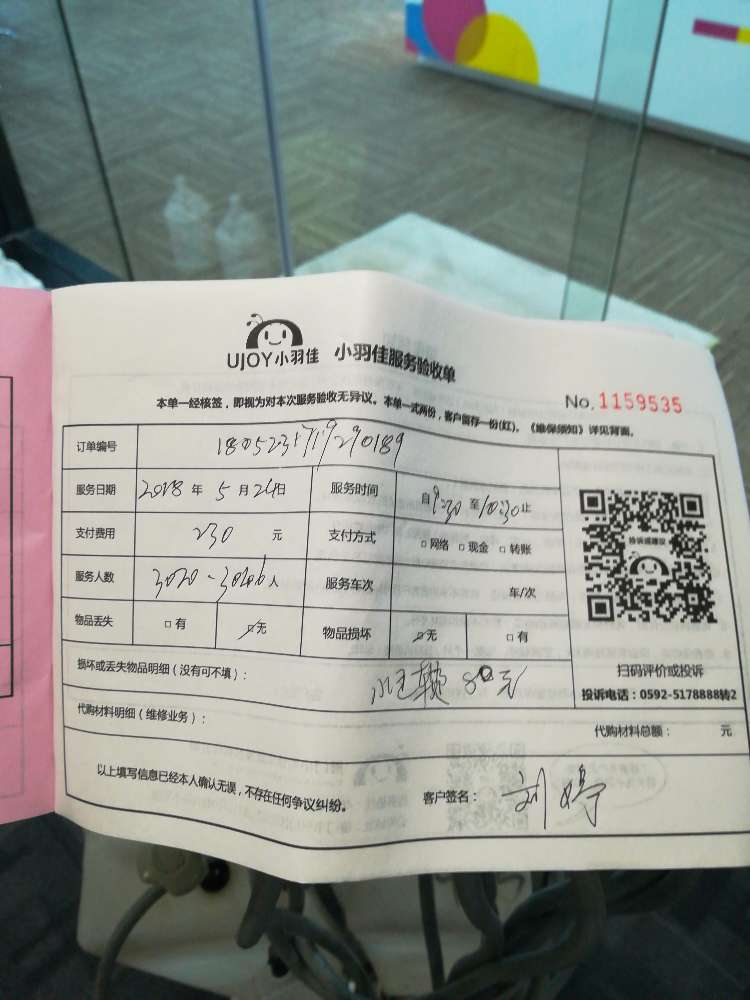 UJOY小羽佳 小羽佳服务验收单
No. 1159535
本单一经核签，即视为对本次服务验收无异议。本单一式两份，客户留存一份(红)。《维保须知》详见背面。
订单编号 180523171920189
服务日期 2018 年 5 月 24 日 服务时间 自 9:30 至 10:30 止
支付费用 230 元 支付方式 □ 网络 □ 现金 □ 转账
服务人数 人 服务车次 车/次
物品丢失 □ 有 □ 无 物品损坏 □ 无 □ 有
投诉或建议
扫码评价或投诉
投诉电话：0592-5178888转2
损坏或丢失物品明细（没有可不填）： 80元
代购材料明细（维修业务）： 代购材料总额： 元
以上填写信息已经本人确认无误，不存在任何争议纠纷。 客户签名： 刘婷